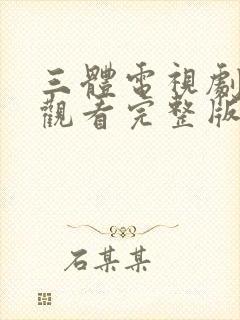 三體電視劇
觀看完整版
石某某